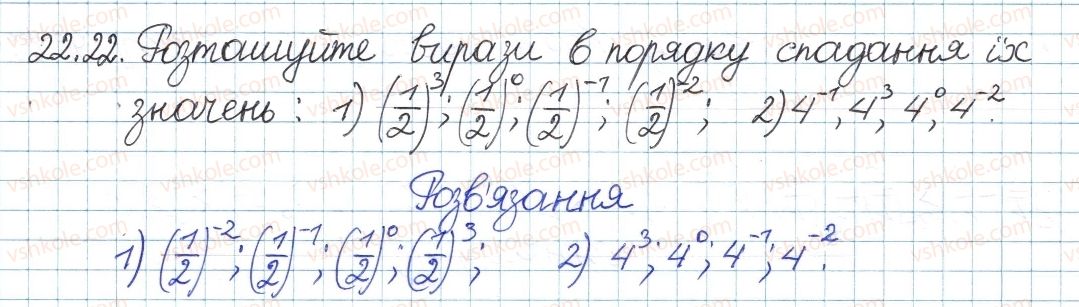 22.22. Розташуйте вирази в порядку спадання їх
значень: 1) (1/2)³; (1/2)⁰; (1/2)⁻¹; (1/2)⁻²; 2) 4⁻¹; 4³; 4⁰; 4⁻².
Розв'язання
1) (1/2)⁻²; (1/2)⁻¹; (1/2)⁰; (1/2)³; 2) 4³; 4⁰; 4⁻¹; 4⁻².